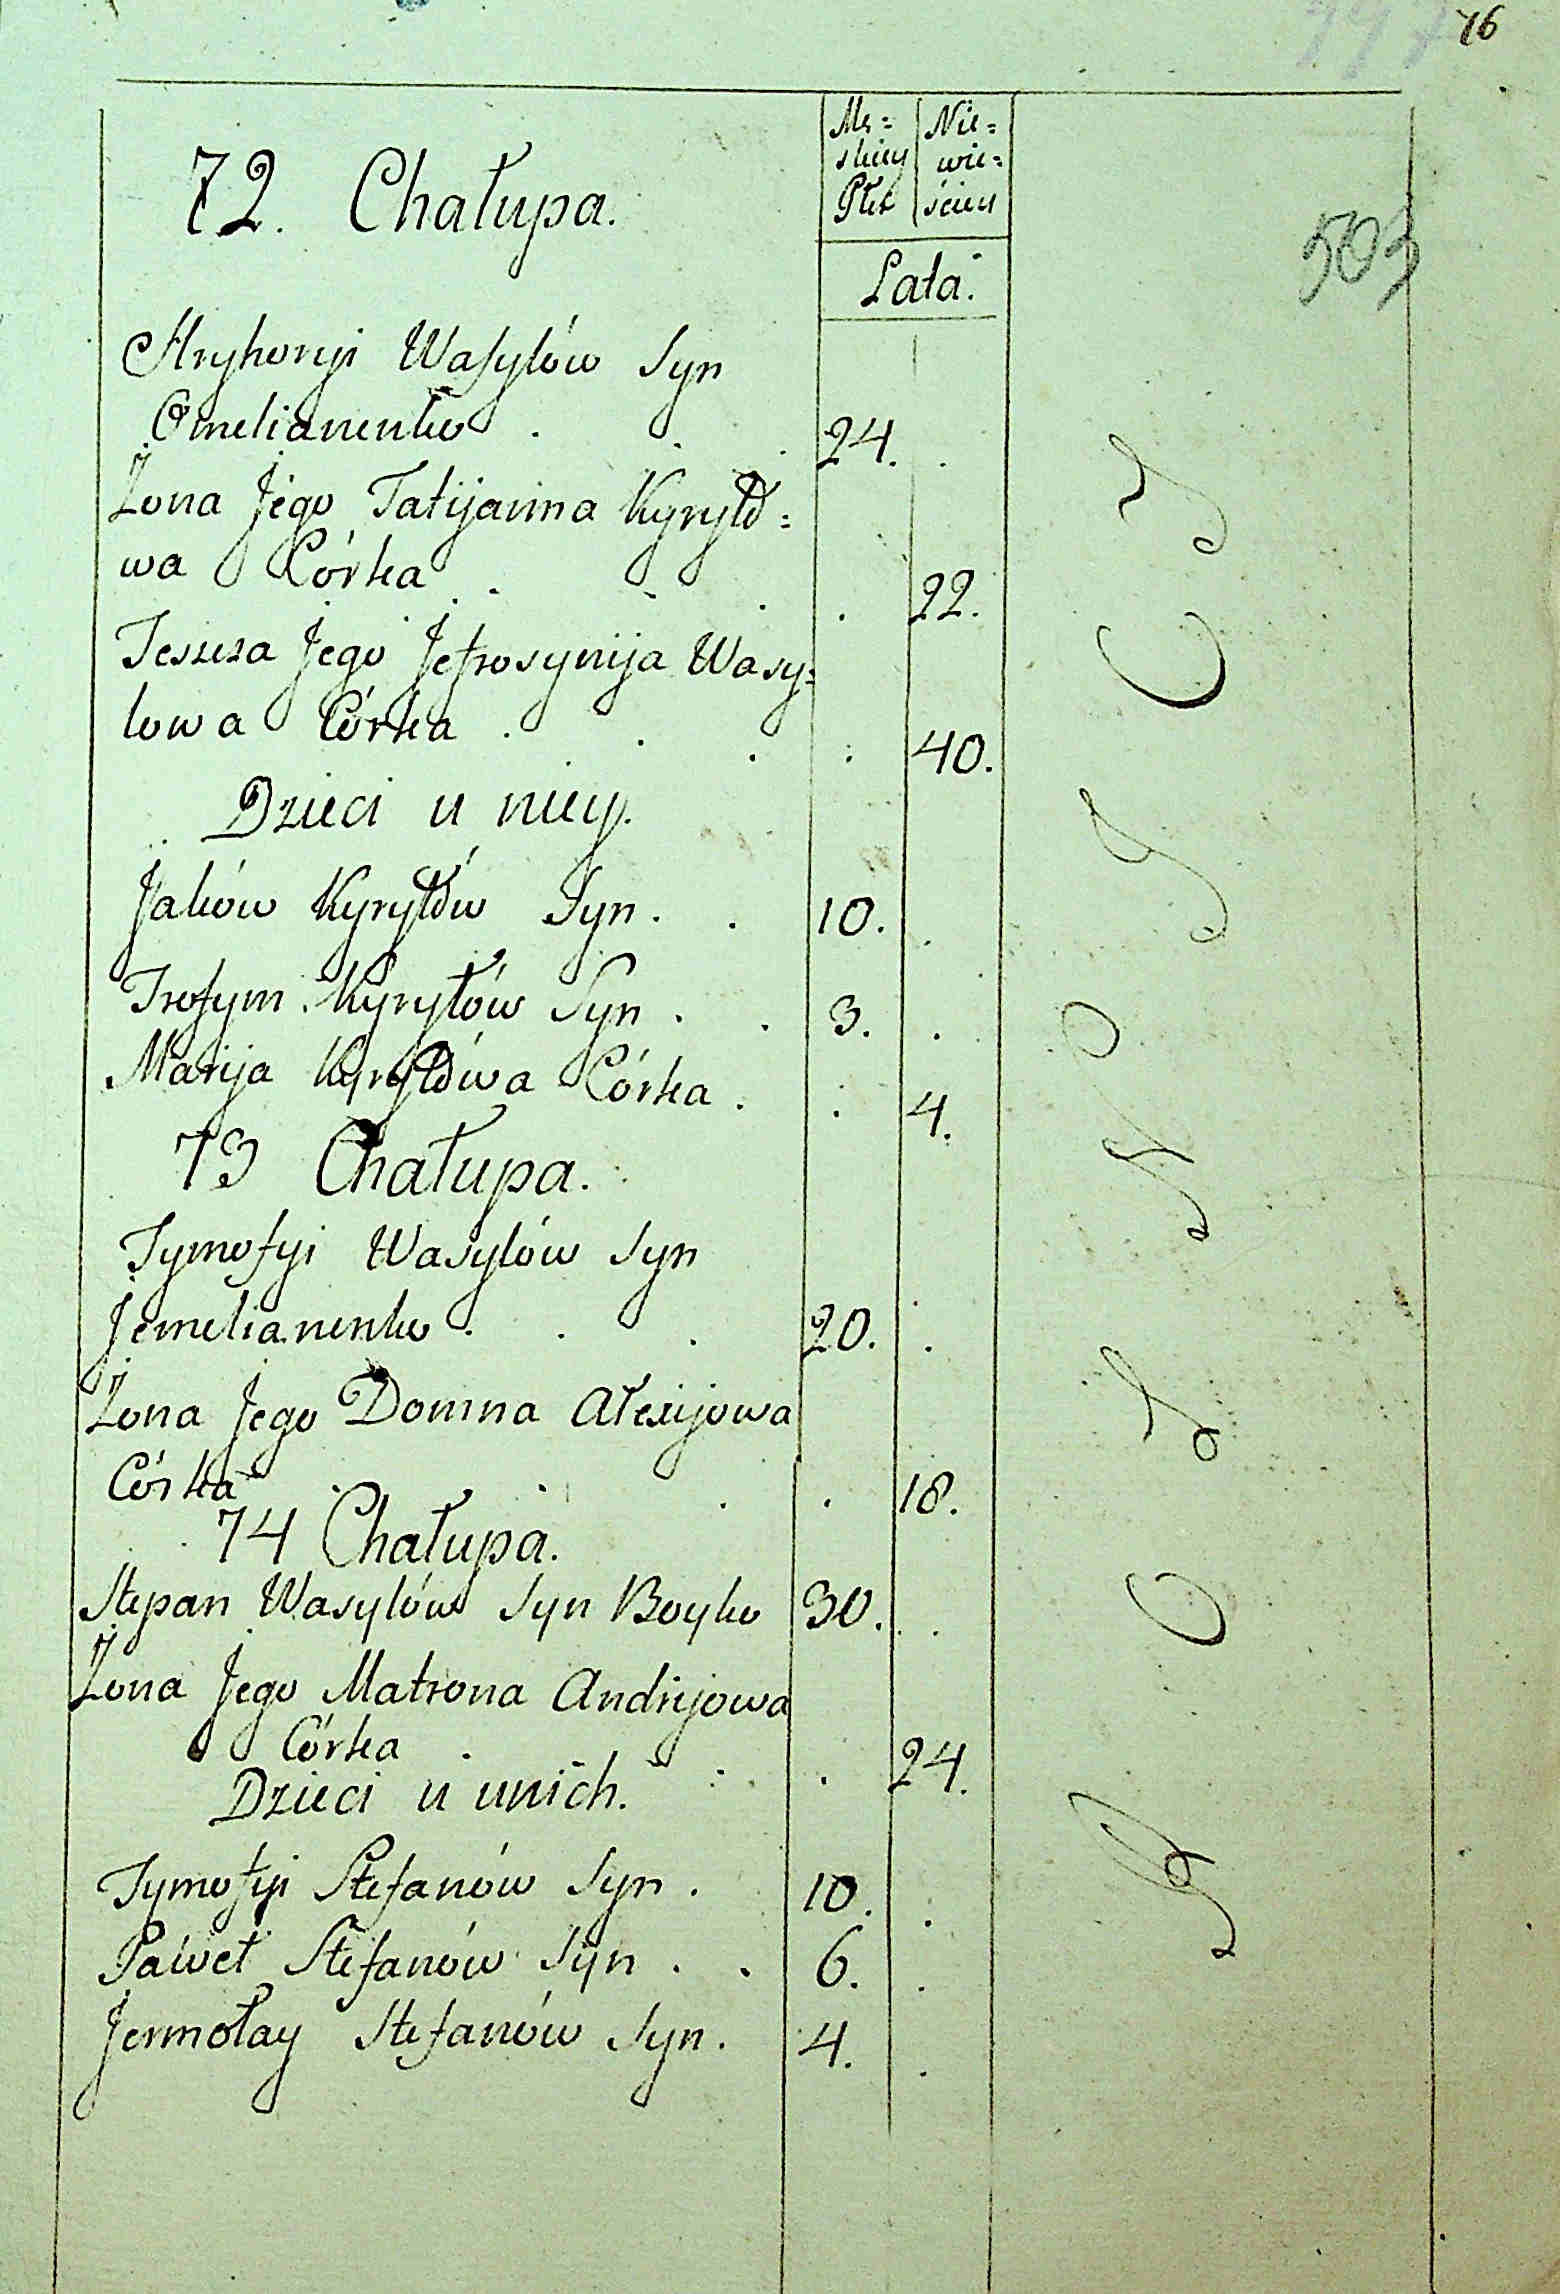 76
72. Chałupa.
Mę=
skiey
Płei
Nie=
wie=
ściey
Lata.
503
Hryhoryi Wasylów Syn
Omelianenko . . . 24. .
Żona Jego Tatijanna Kyryło=
wa Córka . . . . 22.
Teszcza Jego Jefrosynija Wasy=
lowa Córka . . . . 40.
Dzieci u niey.
Jaków Kyryłów Syn . . 10. .
Trofym Kyryłów Syn . . 3. .
Marija Kyryłowa Córka . . 4.
73 Chałupa.
Tymofyi Wasylów Syn
Jemelianenko . . . 20. .
Żona Jego Domna Ałexijowa
Córka . . . . 18.
74 Chałupa.
Stepan Wasylów Syn Boyko 30. .
Żona Jego Matrona Andrijowa
Córka . . . . 24.
Dzieci u unich.
Tymofyi Stefanów Syn . 10. .
Paweł Stefanów Syn . . 6. .
Jermołay Stefanów Syn . 4. .